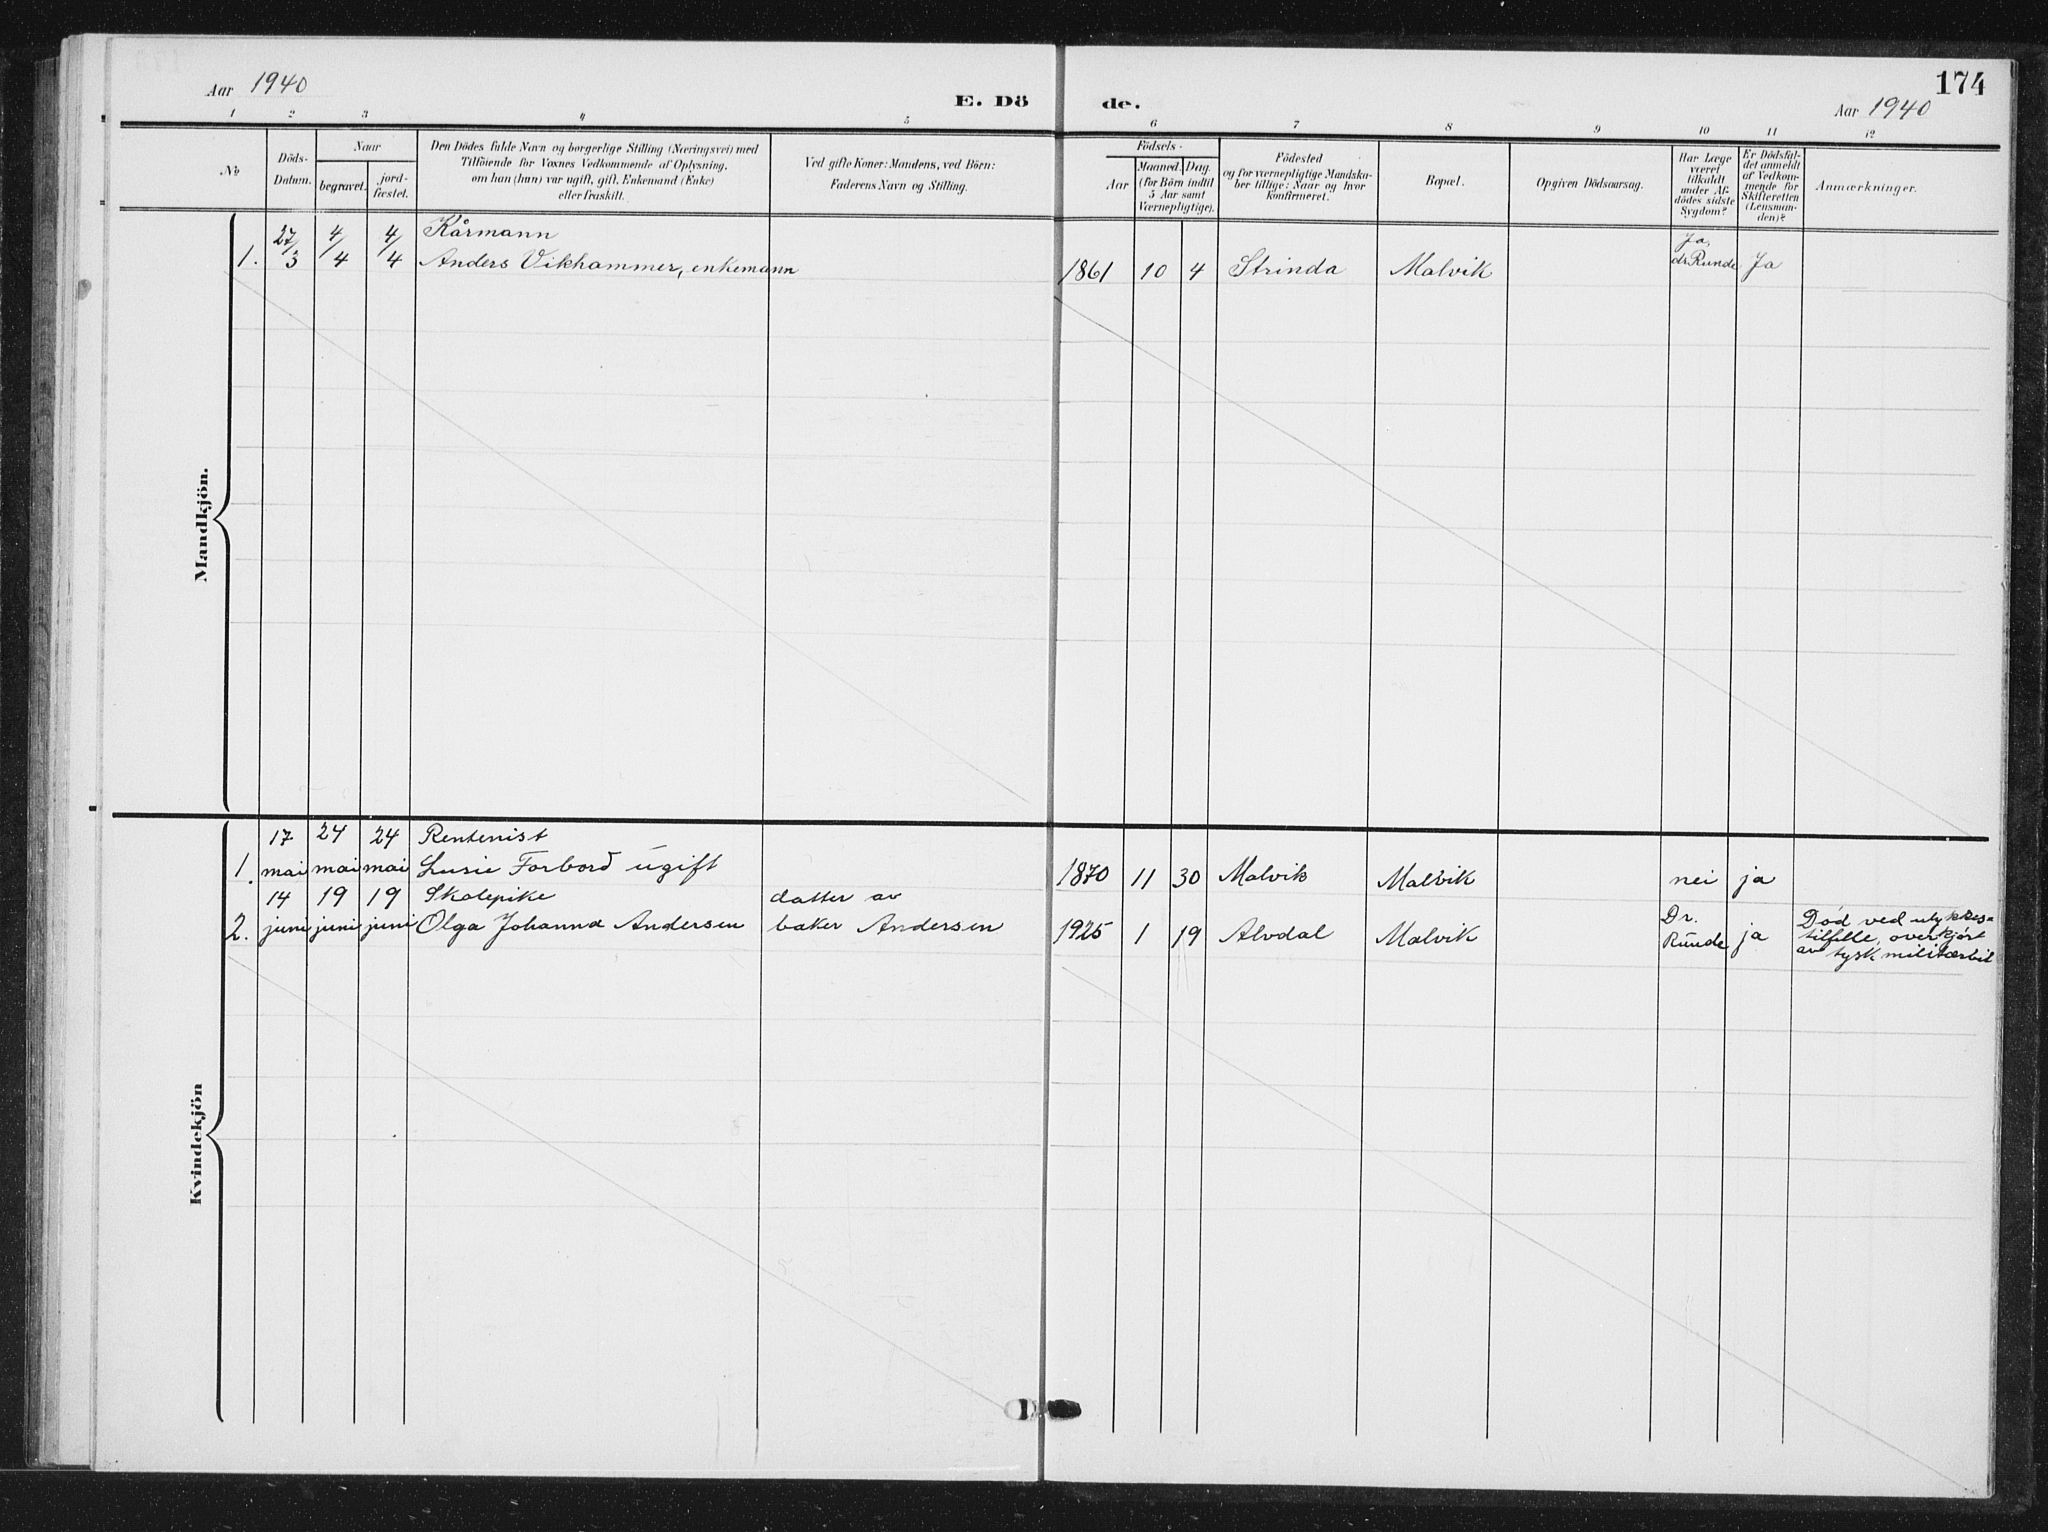 174
Aar 1940
E. Dö de.
Aar 1940
1 2 3 4 5 6 7 8 9 10 11 12
No
Döds-
Datum.
Naar
begravet.
jord-
fæstet.
Den Dödes fulde Navn og borgerlige Stilling (Næringsvei) med
Tilföiende for Voxnes Vedkommende af Oplysning,
om han (hun) var ugift, gift, Enkemand (Enke)
eller fraskilt.
Ved gifte Koner: Mandens, ved Börn:
Faderens Navn og Stilling.
Födsels-
Aar
Maaned. Dag.
(for Börn indtil
5 Aar samt
Værnepligtige).
Födested
og for værnepligtige Mandska-
ber tillige: Naar og hvor
konfirmeret.
Bopæl.
Opgiven Dödsaarsag.
Har Læge
været
tilkaldt
under Af-
dödes sidste
Sygdom?
Er Dödsfal-
det anmeldt
af Vedkom-
mende for
Skifteretten
(Lensman-
den)?
Anmærkninger.
Mandkjön.
27/ 4/ 4/ Kårmann Ja,
1. 3 4 4 Anders Vikhammer, enkemann 1861 10 4 Strinda Malvik dr. Runde Ja
Kvindekjön
17 24 24 Rentenist
1. mai mai mai Lusie Forbord ugift 1870 11 30 Malvik Malvik nei ja
14 19 19 Skolepike datter av Dr. Död ved ulykkes-
2. juni juni juni Olga Johanna Andersen baker Andersen 1925 1 19 Alvdal Malvik Runde ja tilfelle, overkjört
av tysk militærbil